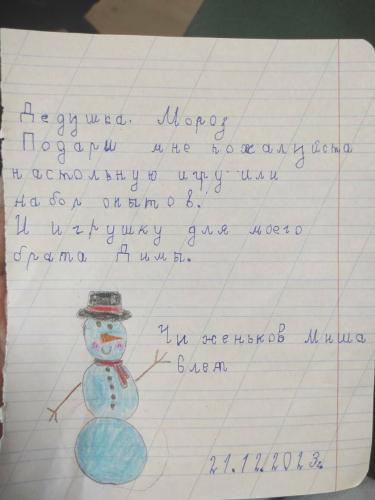 Дедушка. Мороз
Подари мне пожалуйста
настольную игру или
набор опытов.
И игрушку для моего
брата Димы.
Чиженьков Миша
8 лет
21.12.2023г.